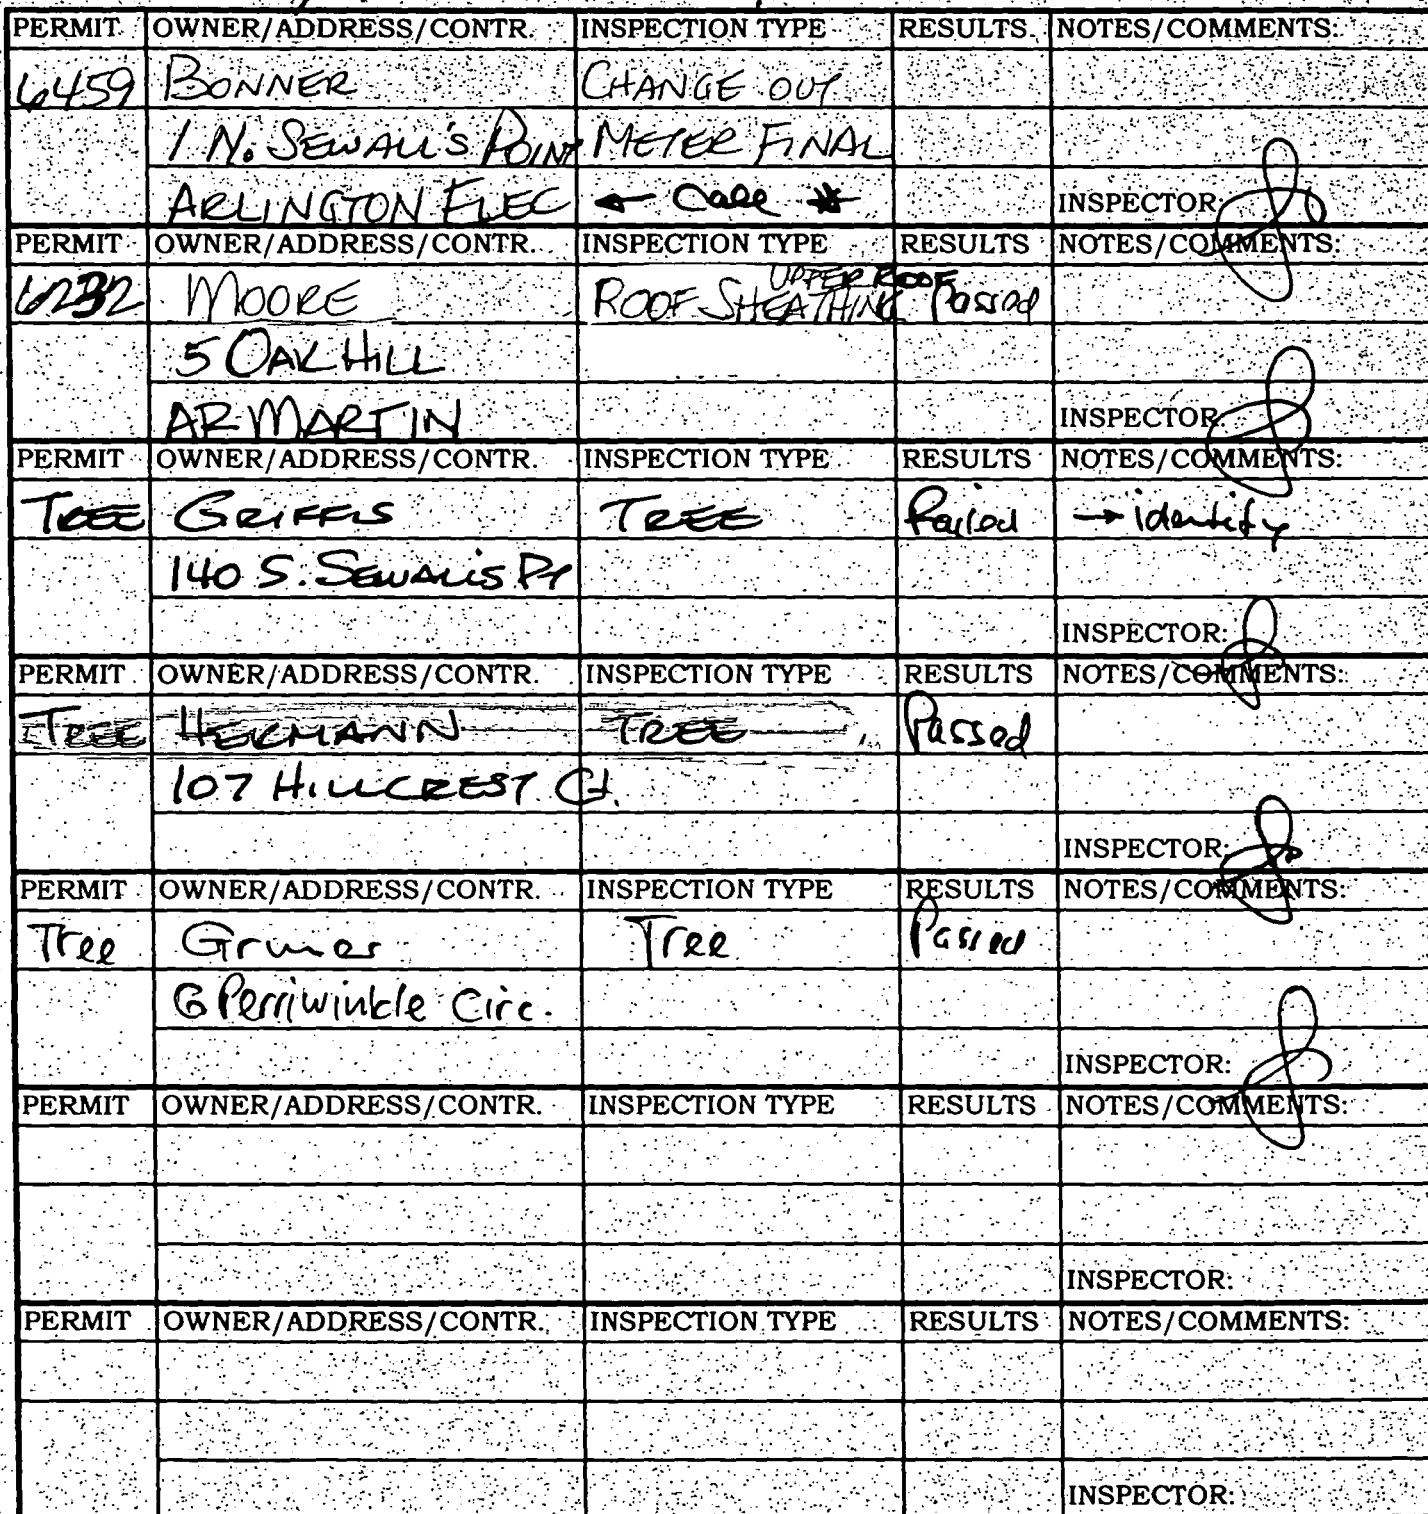 PERMIT OWNER/ADDRESS/CONTR. INSPECTION TYPE RESULTS NOTES/COMMENTS:
6459 BONNER CHANGE OUT
1 N. SEWALL'S POINT METER FINAL
ARLINGTON ELEC ← Call * INSPECTOR:
PERMIT OWNER/ADDRESS/CONTR. INSPECTION TYPE RESULTS NOTES/COMMENTS:
UPPER ROOF
6232 MOORE ROOF SHEATHING Passed
5 OAK HILL
AR MARTIN INSPECTOR:
PERMIT OWNER/ADDRESS/CONTR. INSPECTION TYPE RESULTS NOTES/COMMENTS:
TREE GRIFFIS TREE Failed → identify
140 S. SEWALL'S PT
INSPECTOR:
PERMIT OWNER/ADDRESS/CONTR. INSPECTION TYPE RESULTS NOTES/COMMENTS:
TREE HERMANN TREE Passed
107 HILLCREST Ct.
INSPECTOR:
PERMIT OWNER/ADDRESS/CONTR. INSPECTION TYPE RESULTS NOTES/COMMENTS:
Tree Tree Passed
6 Perriwinkle Circ.
INSPECTOR:
PERMIT OWNER/ADDRESS/CONTR. INSPECTION TYPE RESULTS NOTES/COMMENTS:
INSPECTOR:
PERMIT OWNER/ADDRESS/CONTR. INSPECTION TYPE RESULTS NOTES/COMMENTS:
INSPECTOR: